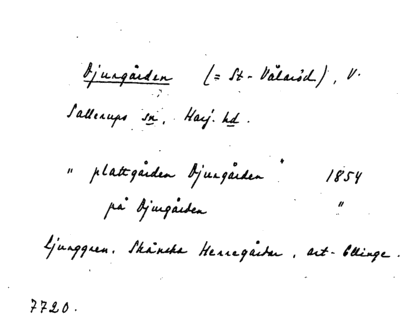 Djurgården (= St-Vålaröd), V.
Sallerups sn, Harj. hd.
" plattgården Djurgården " 1854
på Djurgården "
Ljunggren, Skånska Herregårdar, art. Ellinge.
7720.